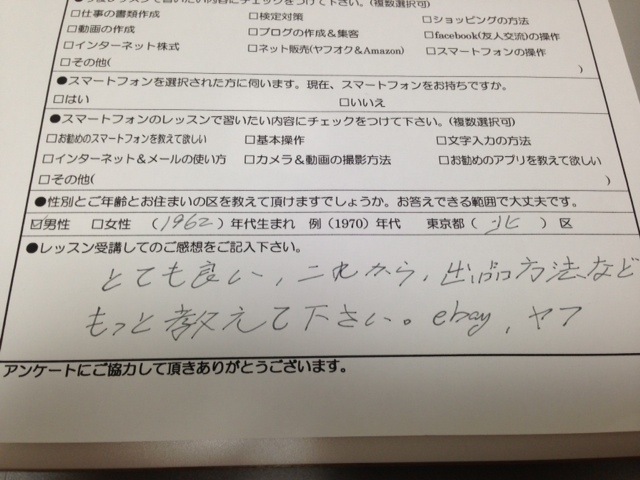 習いたい内容にチェックをつけて下さい。(複数選択可)
□仕事の書類作成 □検定対策 □ショッピングの方法
□動画の作成 □ブログの作成＆集客 □facebook(友人交流)の操作
□インターネット株式 □ネット販売(ヤフオク＆Amazon) □スマートフォンの操作
□その他( )
●スマートフォンを選択された方に伺います。現在、スマートフォンをお持ちですか。
□はい □いいえ
●スマートフォンのレッスンで習いたい内容にチェックをつけて下さい。(複数選択可)
□お勧めのスマートフォンを教えて欲しい □基本操作 □文字入力の方法
□インターネット＆メールの使い方 □カメラ＆動画の撮影方法 □お勧めのアプリを教えて欲しい
□その他( )
●性別とご年齢とお住まいの区を教えて頂けますでしょうか。お答えできる範囲で大丈夫です。
☑男性 □女性 (1962)年代生まれ 例(1970)年代 東京都(北)区
●レッスン受講してのご感想をご記入下さい。
とても良い、これから、出品方法など
もっと教えて下さい。ebay, ヤフ
アンケートにご協力して頂きありがとうございます。